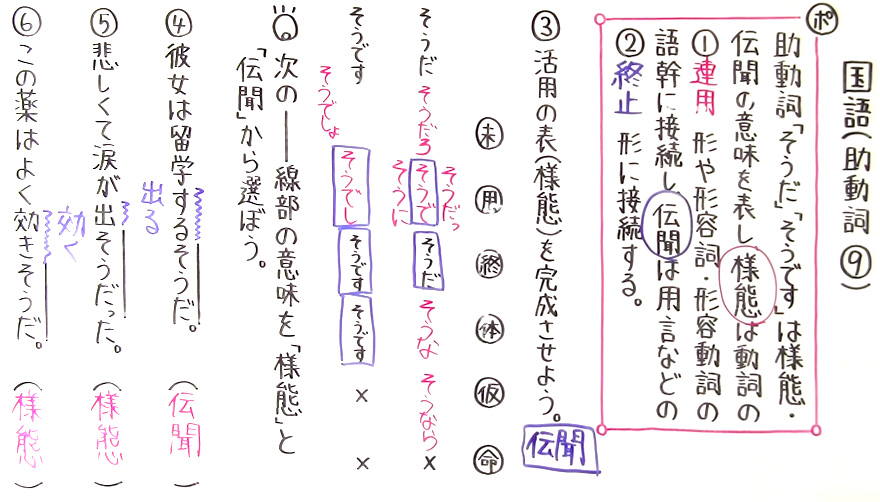 国語(助動詞⑨)
ポ
助動詞「そうだ」「そうです」は様態・
伝聞の意味を表し、様態は動詞の
①連用形や形容詞・形容動詞の
語幹に接続し、伝聞は用言などの
②終止形に接続する。
③活用の表(様態)を完成させよう。
伝聞
未 用 終 体 仮 命
そうだ そうだろ そうだっ そうで そうに そうだ そうな そうなら ×
そうです そうでしょ そうでし そうです そうです × ×
次の――線部の意味を「様態」と
「伝聞」から選ぼう。
④彼女は留学するそうだ。(伝聞)
出る
⑤悲しくて涙が出そうだった。(様態)
効く
⑥この薬はよく効きそうだ。(様態)